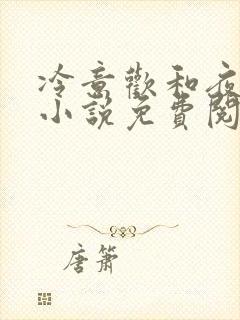 冷意歡和夜
小說免費閱
唐簫